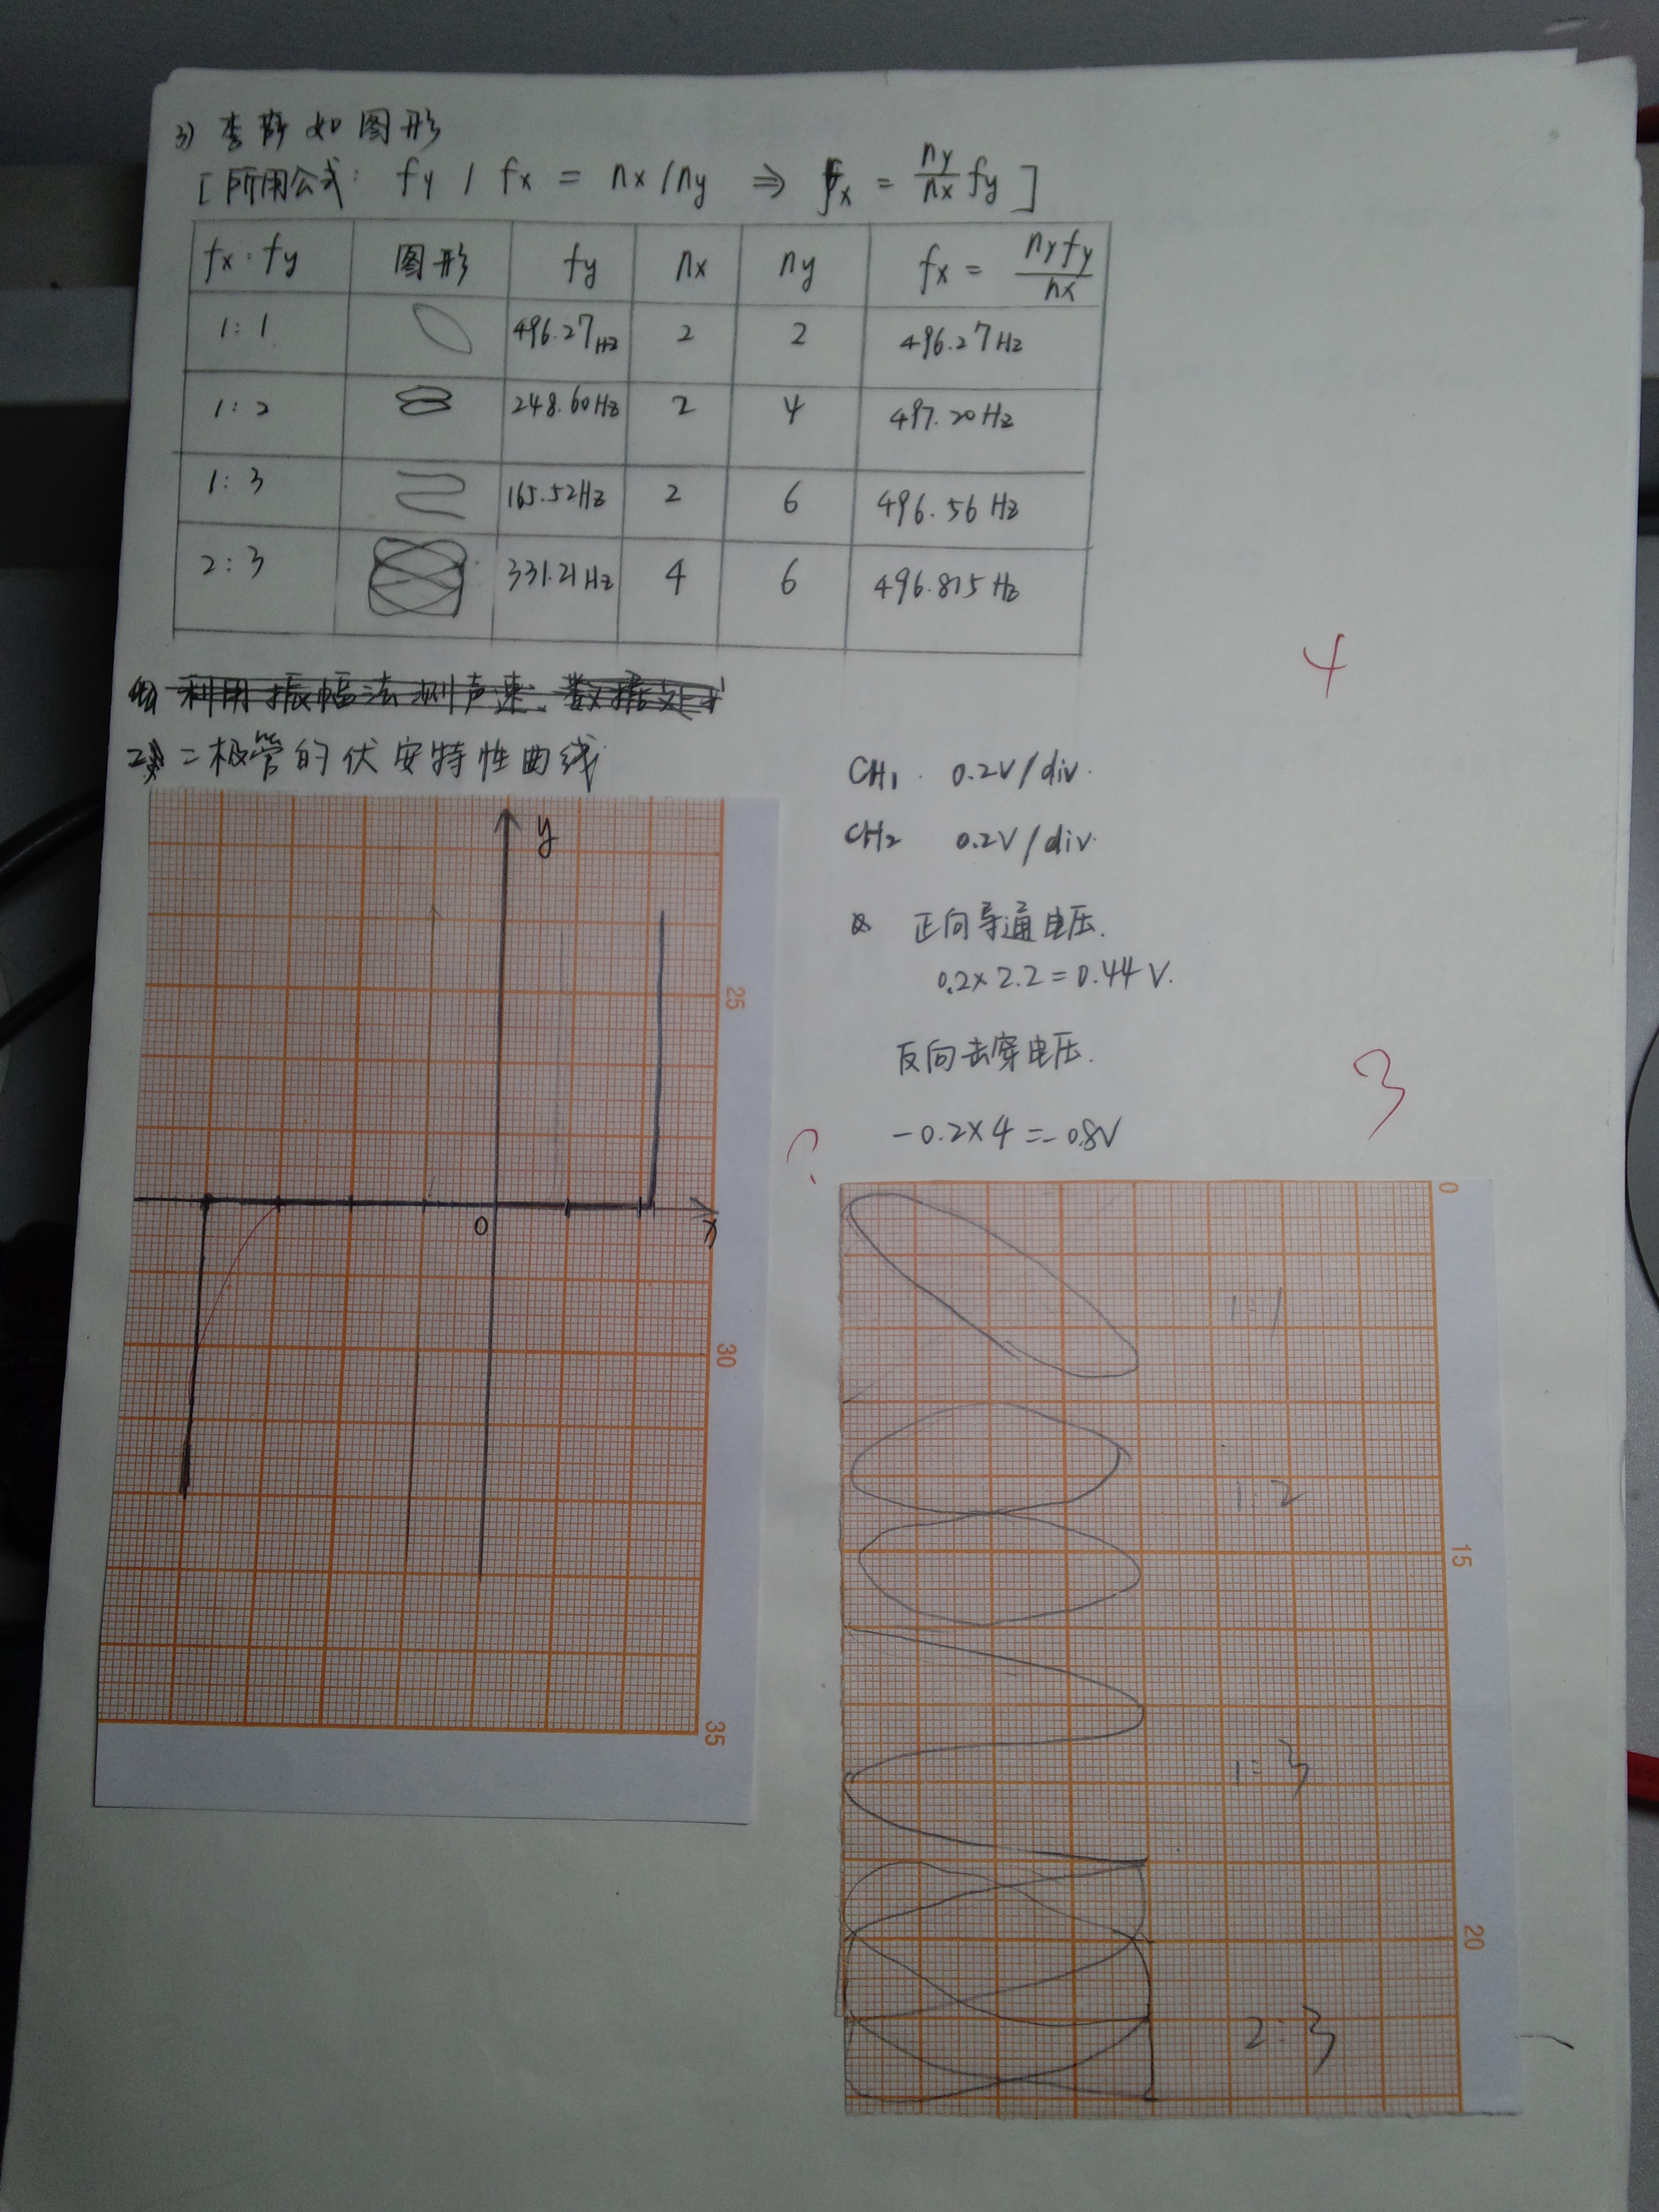 3) 李萨如图形
[所用公式: fy / fx = nx/ny ⇒ fx = ny/nx fy]
fx : fy 图形 fy nx ny fx = nyfy/nx
1 : 1 496.27Hz 2 2 496.27Hz
1 : 2 248.60Hz 2 4 497.20Hz
1 : 3 165.52Hz 2 6 496.56 Hz
2 : 3 331.21Hz 4 6 496.815Hz
4
利用振幅法测声速、数据处
二极管的伏安特性曲线
CH1 0.2V/div.
CH2 0.2V/div.
正向导通电压.
0.2×2.2=0.44V.
反向击穿电压.
-0.2×4=-0.8V
3
?
y
25
0
x
30
35
0
1:1
1:2
15
1:3
20
2:3